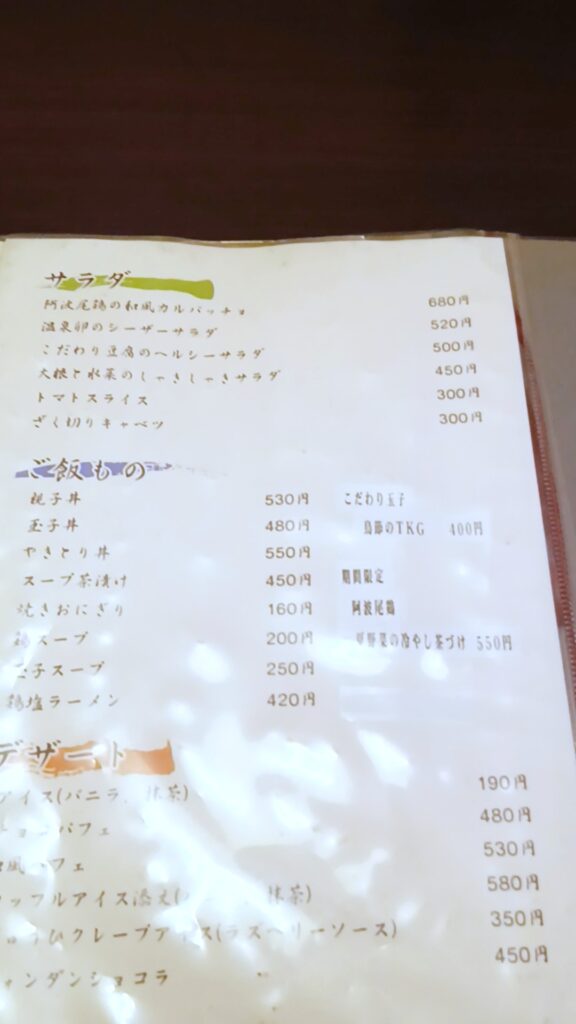 サラダ
阿波尾鶏の和風カルパッチョ 680円
温泉卵のシーザーサラダ 520円
こだわり豆腐のヘルシーサラダ 500円
大根と水菜のしゃきしゃきサラダ 450円
トマトスライス 300円
ざく切りキャベツ 300円
ご飯もの
親子丼 530円
玉子丼 480円
やきとり丼 550円
スープ茶漬け 450円
焼きおにぎり 160円
鶏スープ 200円
玉子スープ 250円
鶏塩ラーメン 420円
こだわり玉子
鳥節のTKG 400円
期間限定
阿波尾鶏
夏野菜の冷やし茶づけ 550円
デザート
アイス(バニラ、抹茶) 190円
パフェ 480円
和風パフェ 530円
ッフルアイス添え( 抹茶) 580円
ゅうひクレープアイス(ラズベリーソース) 350円
ォンダンショコラ 450円